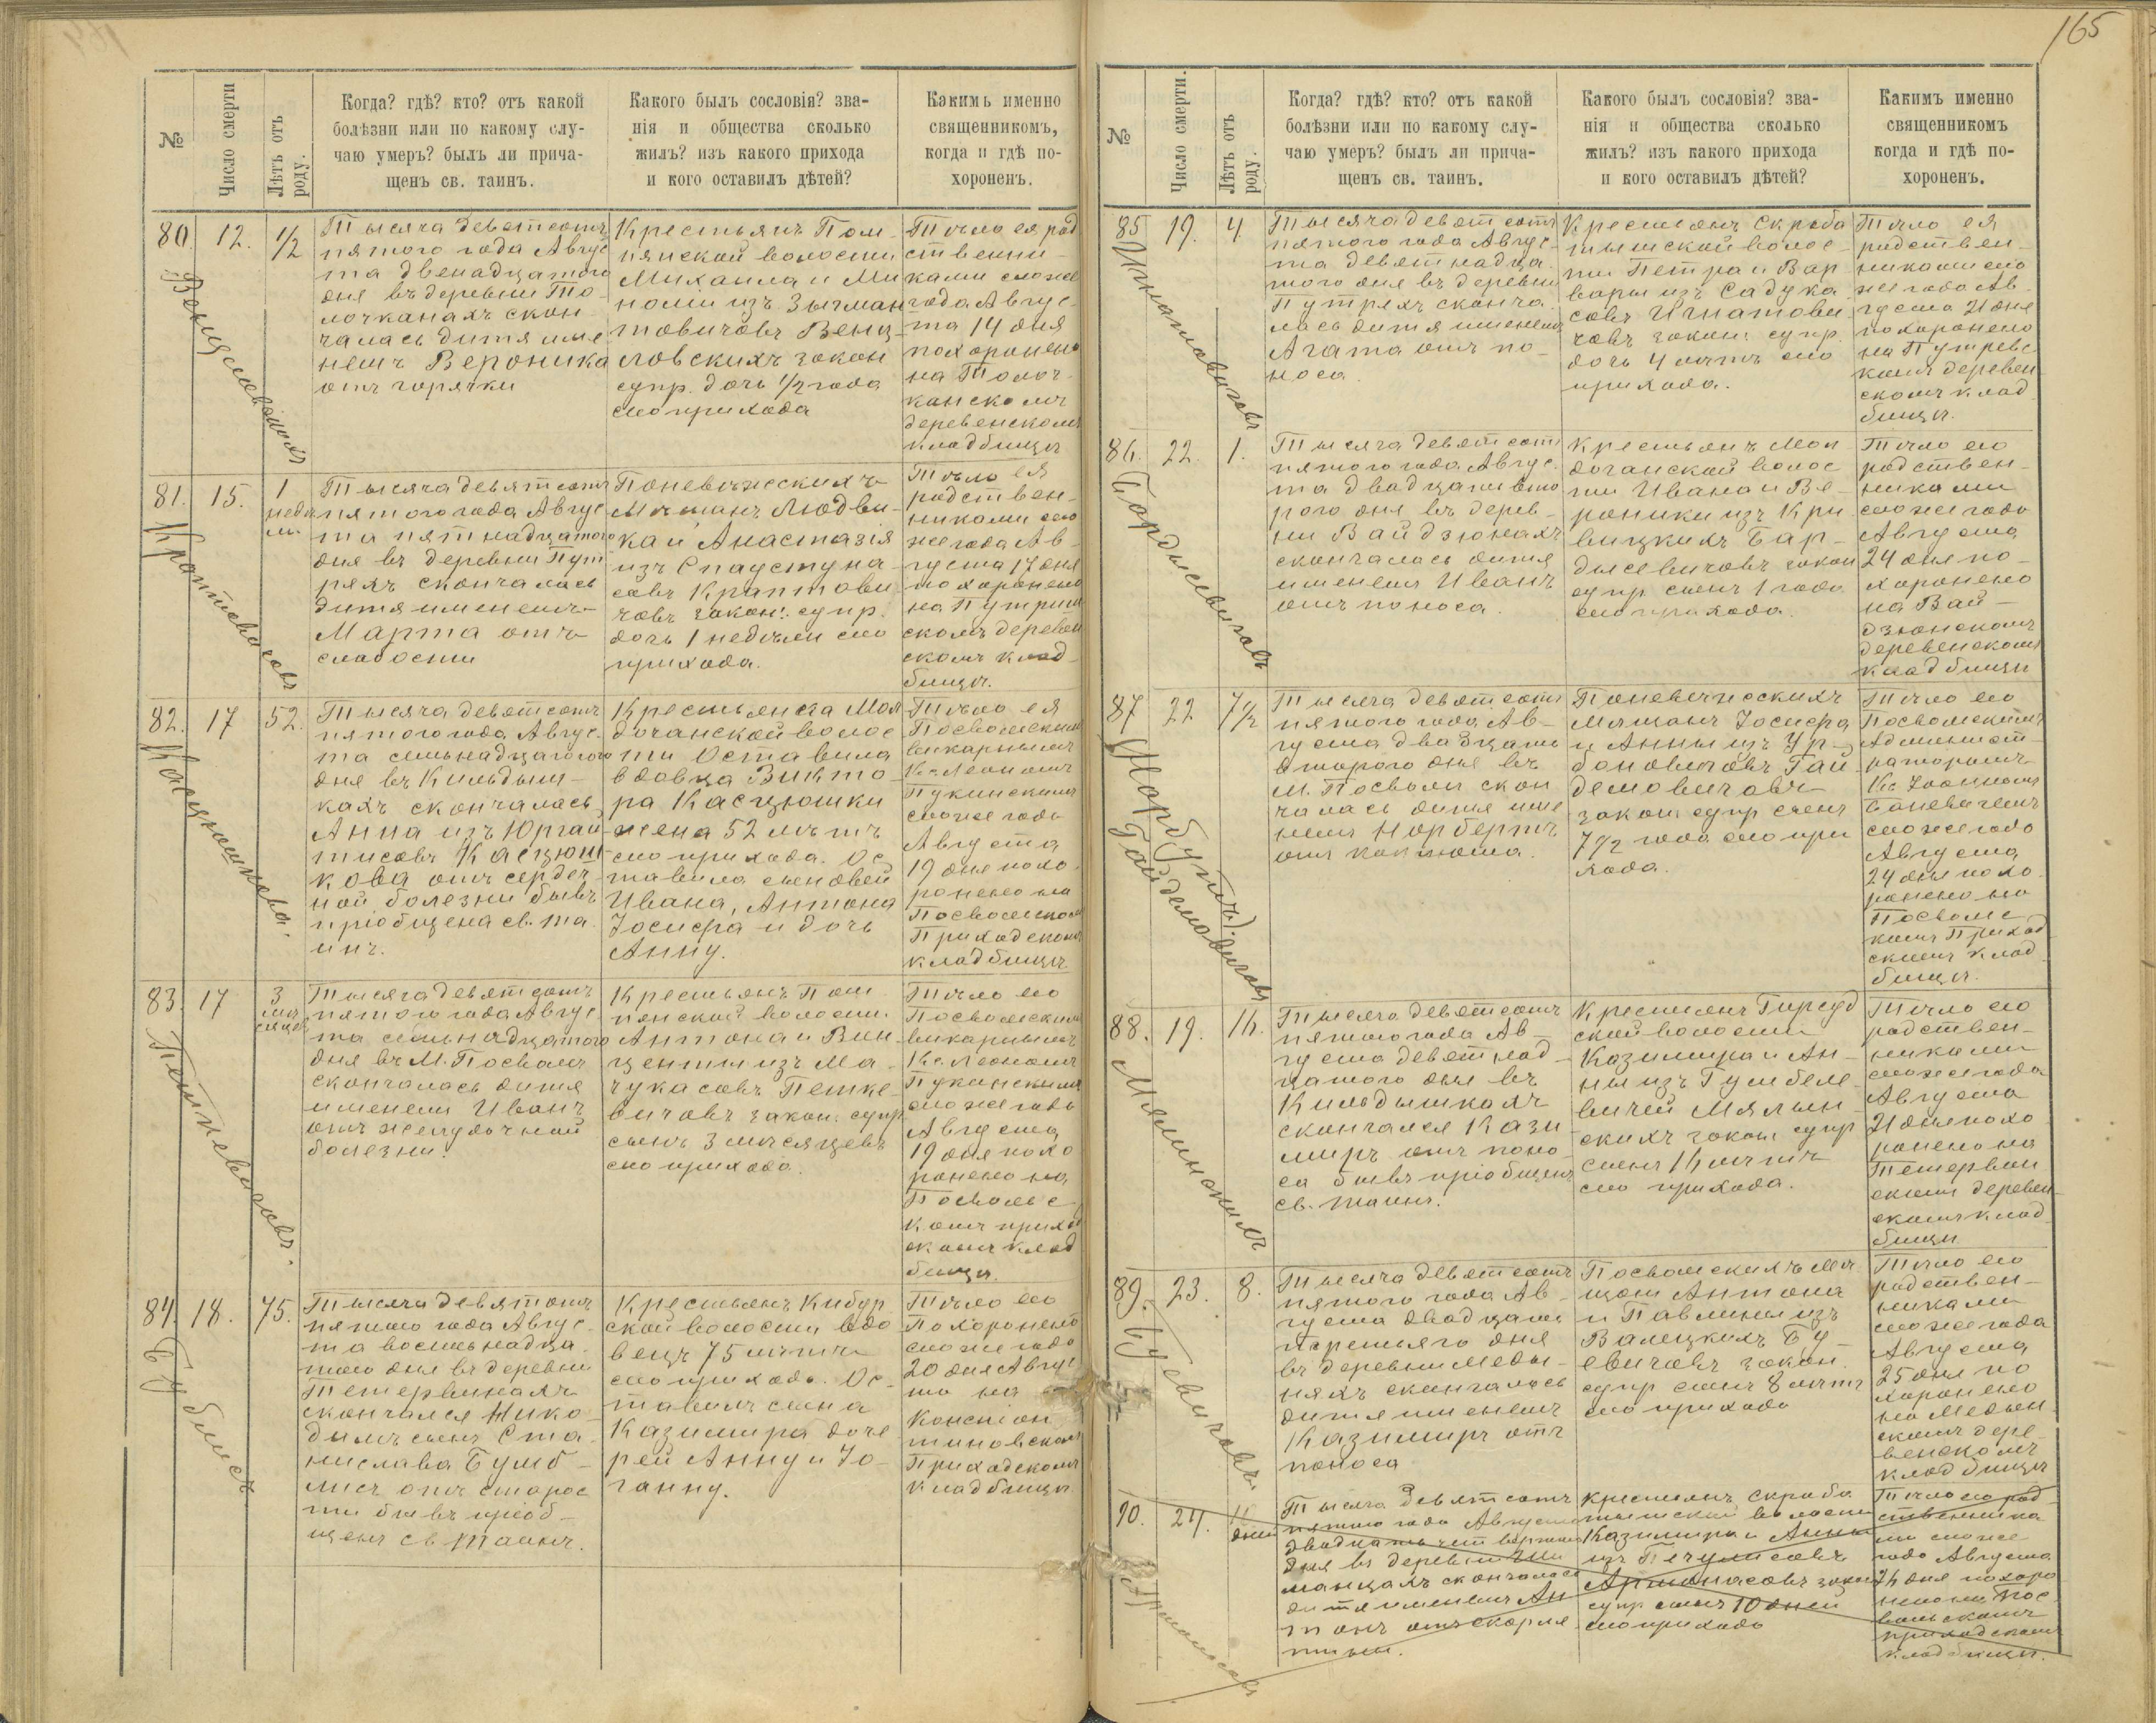 165
№
Число смерти
Лѣтъ отъ роду.
Когда? гдѣ? кто? отъ какой
болѣзни или по какому слу-
чаю умеръ? былъ ли прича-
щенъ св. таинъ.
Какого былъ сословія? зва-
нія и общества сколько
жилъ? изъ какого прихода
и кого оставилъ дѣтей?
Какимъ именно
священникомъ,
когда и гдѣ по-
хороненъ.
80. 12. 1/2
Тысяча девятсотъ
пятого года Авгус
та двенадцатого
дня въ деревни То-
лочканахъ скон
чалась дитя име
немъ Вероника
отъ горячки
Крестьянъ Пом-
пянской волости
Михаила и Ми
налии изъ Зыгман
товичовъ Венц-
ловскихъ закон
супр. дочь 1/2 года
сего прихода
Тѣло ея род
ственни-
ками сего же
года Авгус-
та 14 дня
похоронено
на Толоч-
канскомъ
деревенскомъ
кладбищѣ
81. 15. 1
недѣ
ли
Тысяча девятсотъ
пятого года Авгус
та пятнадцатого
дня въ деревни Пут
ряхъ скончалась
дитя именемъ
Марта отъ
слабости
Поневѣжскихъ
Мѣщанъ Людви-
ка и Анастазія
закон. супр.
дочь 1 недѣли сего
прихода.
Тѣло ея
родствен-
никами сего
же года Ав-
густа 17 дня
похоронено
на Путри
скомъ деревен
скомъ клад-
бищѣ.
82. 17 52.
Тысяча девятсотъ
пятого года Авгус
та семьнадцатого
дня въ Кильдыш-
кахъ скончалась
Анна изъ Юргай
тисовъ Касцюш
кова отъ сердеч
ной болезни бывъ
пріобщена св. Та
инъ.
Крестьянка Мол
дочанской волос
ти Оставила
вдовца Викто-
ра Касцюшки
жена 52 лѣтъ
сего прихода. Ос
тавила сыновей
Ивана, Антона
Іосифа и дочь
Анну.
Тѣло ея
Посвольскимъ
викарнымъ
Кс. Леономъ
Пукинскимъ
сего же года
Августа
19 дня похо
ронено на
Посвольскомъ
Приходскомъ
кладбищѣ
83. 17 3
мѣ
сяцевъ
Тысяча девятсотъ
пятого года Авгус
та семьнадцатого
дня въ М. Посволѣ
скончалась дитя
именемъ Иванъ
отъ желудочной
болезни.
Крестьянъ Пом
пянской волости
Антона и Вин
центы изъ Ма-
чукасовъ Петке
вичовъ закон. супр
сынъ 3 мѣсяцевъ
сего прихода.
Тѣло его
Посвольскимъ
викарнымъ
Кс. Леономъ
Пукинскимъ
сего же года
Августа
19 дня похо
ронено на
Посвольс
комъ приход
скомъ клад
бищѣ.
84. 18. 75.
Тысяча девятсотъ
пятого года Авгус
та восемьнадца
того дня въ деревни
Тетервинахъ
скончался Нико-
дымъ сынъ Ста
нислава Бумб-
лисъ отъ старос
ти бывъ пріоб-
щенъ св. Таинъ.
Крестьянъ Кибур
ской волости вдо
вецъ 75 лѣтъ
сего прихода. Ос-
тавилъ сына
Казимира доче
рей Анну и Іо-
ганну.
Тѣло его
похоронено
сего же года
20 дня Авгус
та на
Констан
тиновскомъ
Приходскомъ
кладбищѣ
№
Число смерти.
Лѣтъ отъ роду.
Когда? гдѣ? кто? отъ какой
болѣзни или по какому слу-
чаю умеръ? былъ ли прича-
щенъ св. таинъ.
Какого былъ сословія? зва-
нія и общества сколько
жилъ? изъ какого прихода
и кого оставилъ дѣтей?
Какимъ именно
священникомъ
когда и гдѣ по-
хороненъ.
85 19. 4.
Игнатовичовъ
Тысяча девятсотъ
пятого года Авгус-
та девятнадца
того дня въ деревни
Путряхъ сконча
лась дитя именемъ
Агата отъ по-
носа.
Крестьянъ Скроба
тышской волос-
ти Петра и Вар
вары изъ Садука
совъ Игнатови
човъ закон. супр.
дочь 4 лѣтъ сего
прихода.
Тѣло ея
родствен-
никами се
го же года Ав-
густа 21 дня
похоронено
на Путревс
комъ деревен
скомъ клад
бищѣ.
86. 22. 1.
Тысяча девятсотъ
пятого года Авгус-
та двадцать вто
рого дня въ дерев-
ни Вайдзюнахъ
скончалась дитя
именемъ Иванъ
отъ поноса.
Крестьянъ Мол
дочанской волос
ти Ивана и Ве-
роники изъ Кри
вицкихъ Бар-
дысевичовъ закон
супр сынъ 1 года
сего прихода.
Тѣло его
родствен-
никами
сего же года
Августа
24 дня по-
хоронено
на Вай-
дзюнскомъ
деревенскомъ
кладбищѣ
87 22 7 1/2
Норбутъ
Гайдемовичовъ
Тысяча девятсотъ
пятого года Ав-
густа двадцать
второго дня въ
М. Посволи скон
чалась дитя име
немъ Норбертъ
отъ коклюша.
Поневежскихъ
Мѣщанъ Іосифа
и Анны изъ Ур-
боновичовъ Гай
демовичовъ
закон супр сынъ
7 1/2 года сего при
хода.
Тѣло его
Посвольскимъ
Админист-
раторомъ
Кс. Іоанномъ
сего же года
Августа
24 дня похо
ронено на
Посвольс
комъ Приход
скомъ клад
бищѣ.
88. 19. 16.
Тысяча девятсотъ
пятого года Ав-
густа девятнад-
цатого дня въ
Кильдышкахъ
скончался Кази
миръ отъ поно
са бывъ пріобщенъ
св. Таинъ.
Крестьянъ Гирсуд
ской волости
Казимира и Ан-
ны изъ Гумбеле
вичей Мялин
скихъ закон супр
сынъ 16 лѣтъ
сего прихода.
Тѣло его
родствен-
никами
сего же года
Августа
21 дня похо
ронено на
Тетервин
скомъ деревен-
скомъ клад
бищѣ
89. 23. 8.
Буевичовъ
Тысяча девятсотъ
пятого года Ав-
густа двадцать
третьяго дня
въ деревни Меды-
няхъ скончалась
дитя именемъ
Казимиръ отъ
поноса
Посвольскихъ Мѣ
щан Антона
и Павлины изъ
Валецкихъ Бу-
евичовъ закон.
супр сынъ 8 лѣтъ
сего прихода
Тѣло его
родствен-
никами
сего же года
Августа
25 дня по
хоронено
на Медын-
скомъ дере-
венскомъ
кладбищѣ
90. 24.
дней
Тысяча девятсотъ
пятого года Августа
двадцать четвертого
дня въ деревни
скончалась
дитя именемъ Ан
тонъ отъ скарла
тины.
Крестьянъ Скроба
тышской волости
Казимира и Анны
изъ Печулисовъ
закон
супр сынъ 10 дней
сего прихода
Тѣло его род
ственника
ми сего же
года Августа
26 дня похоро
нено на Пос
вольскомъ
приходскомъ
кладбищѣ.